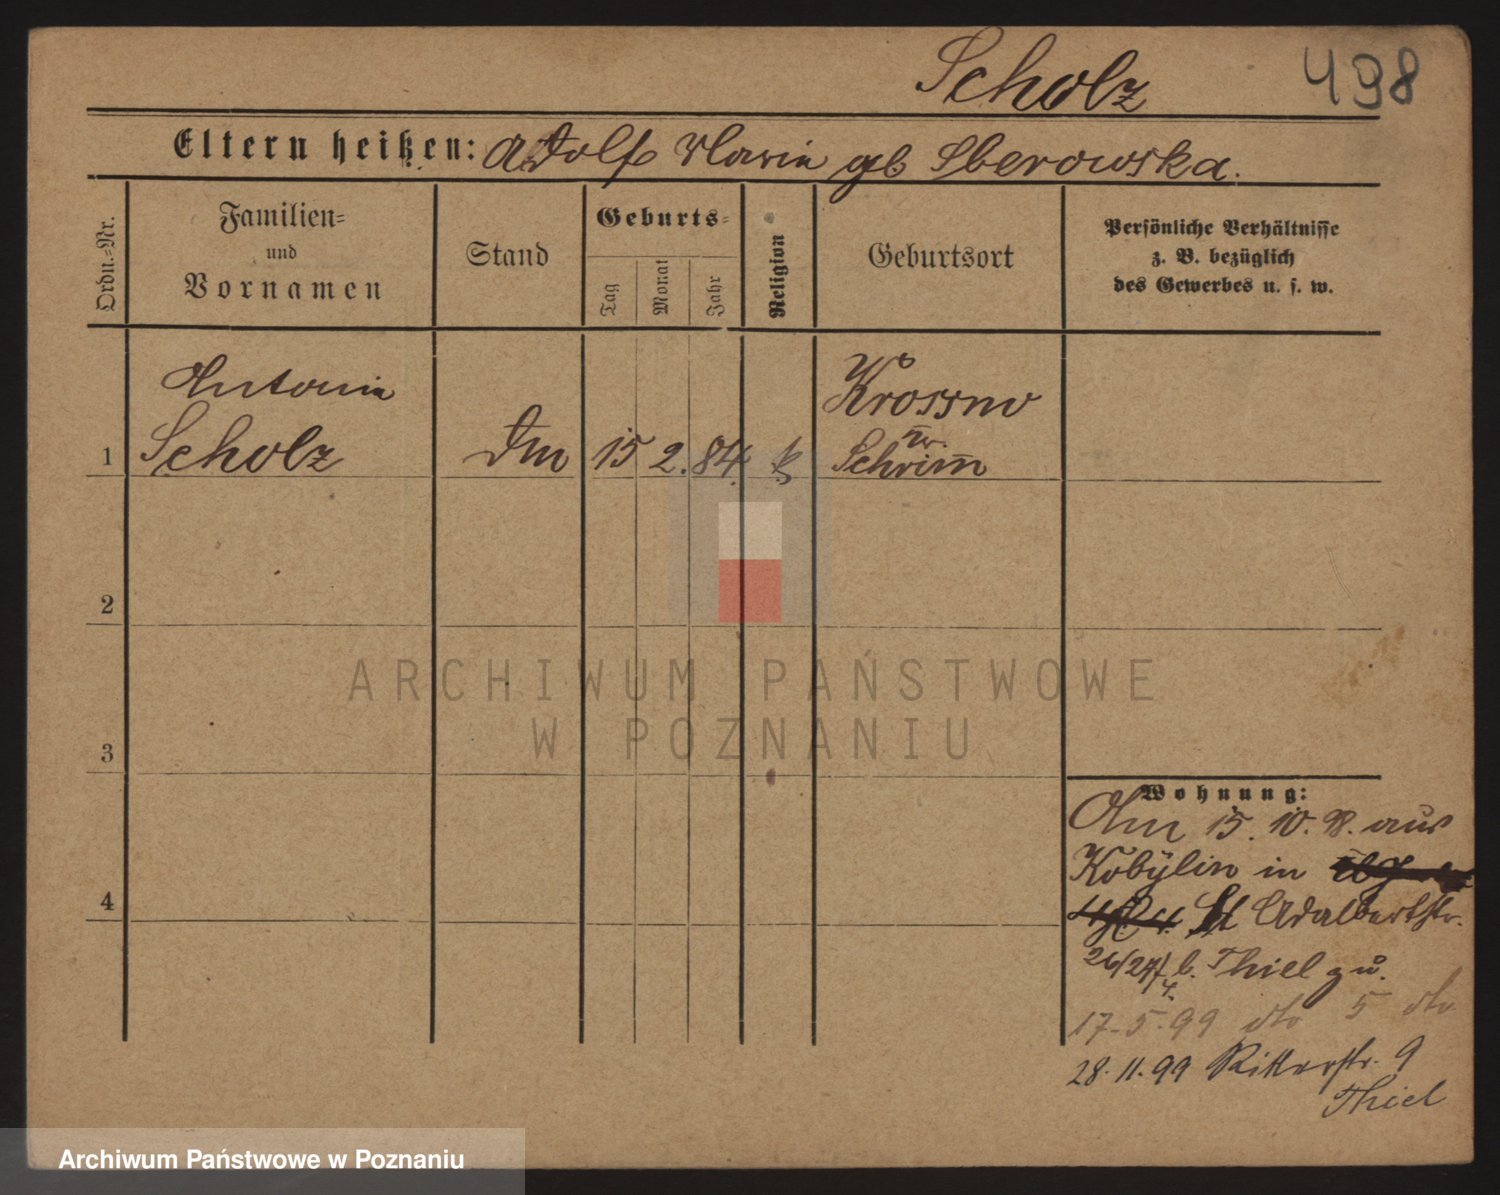 Scholz 498
Eltern heißen: Adolf Maria geb Sberowska.
Ordn.-Nr.
Familien-
und
Vornamen
Stand
Geburts-
Tag
Monat
Jahr
Religion
Geburtsort
Persönliche Verhältnisse
z. B. bezüglich
des Gewerbes u. s. w.
Antonie
Krossno
1 Scholz Dm 15 2. 84. k Schrimm
2
3
4
ARCHIWUM PAŃSTWOWE
W POZNANIU
Wohnung:
Am 15. 10. 98. aus
Kobylin in
St Adalbertstr.
26/27 b. Thiel zu.
17.5.99 dto 5 dto
28.11.99 Ritterstr. 9
Thiel
Archiwum Państwowe w Poznaniu